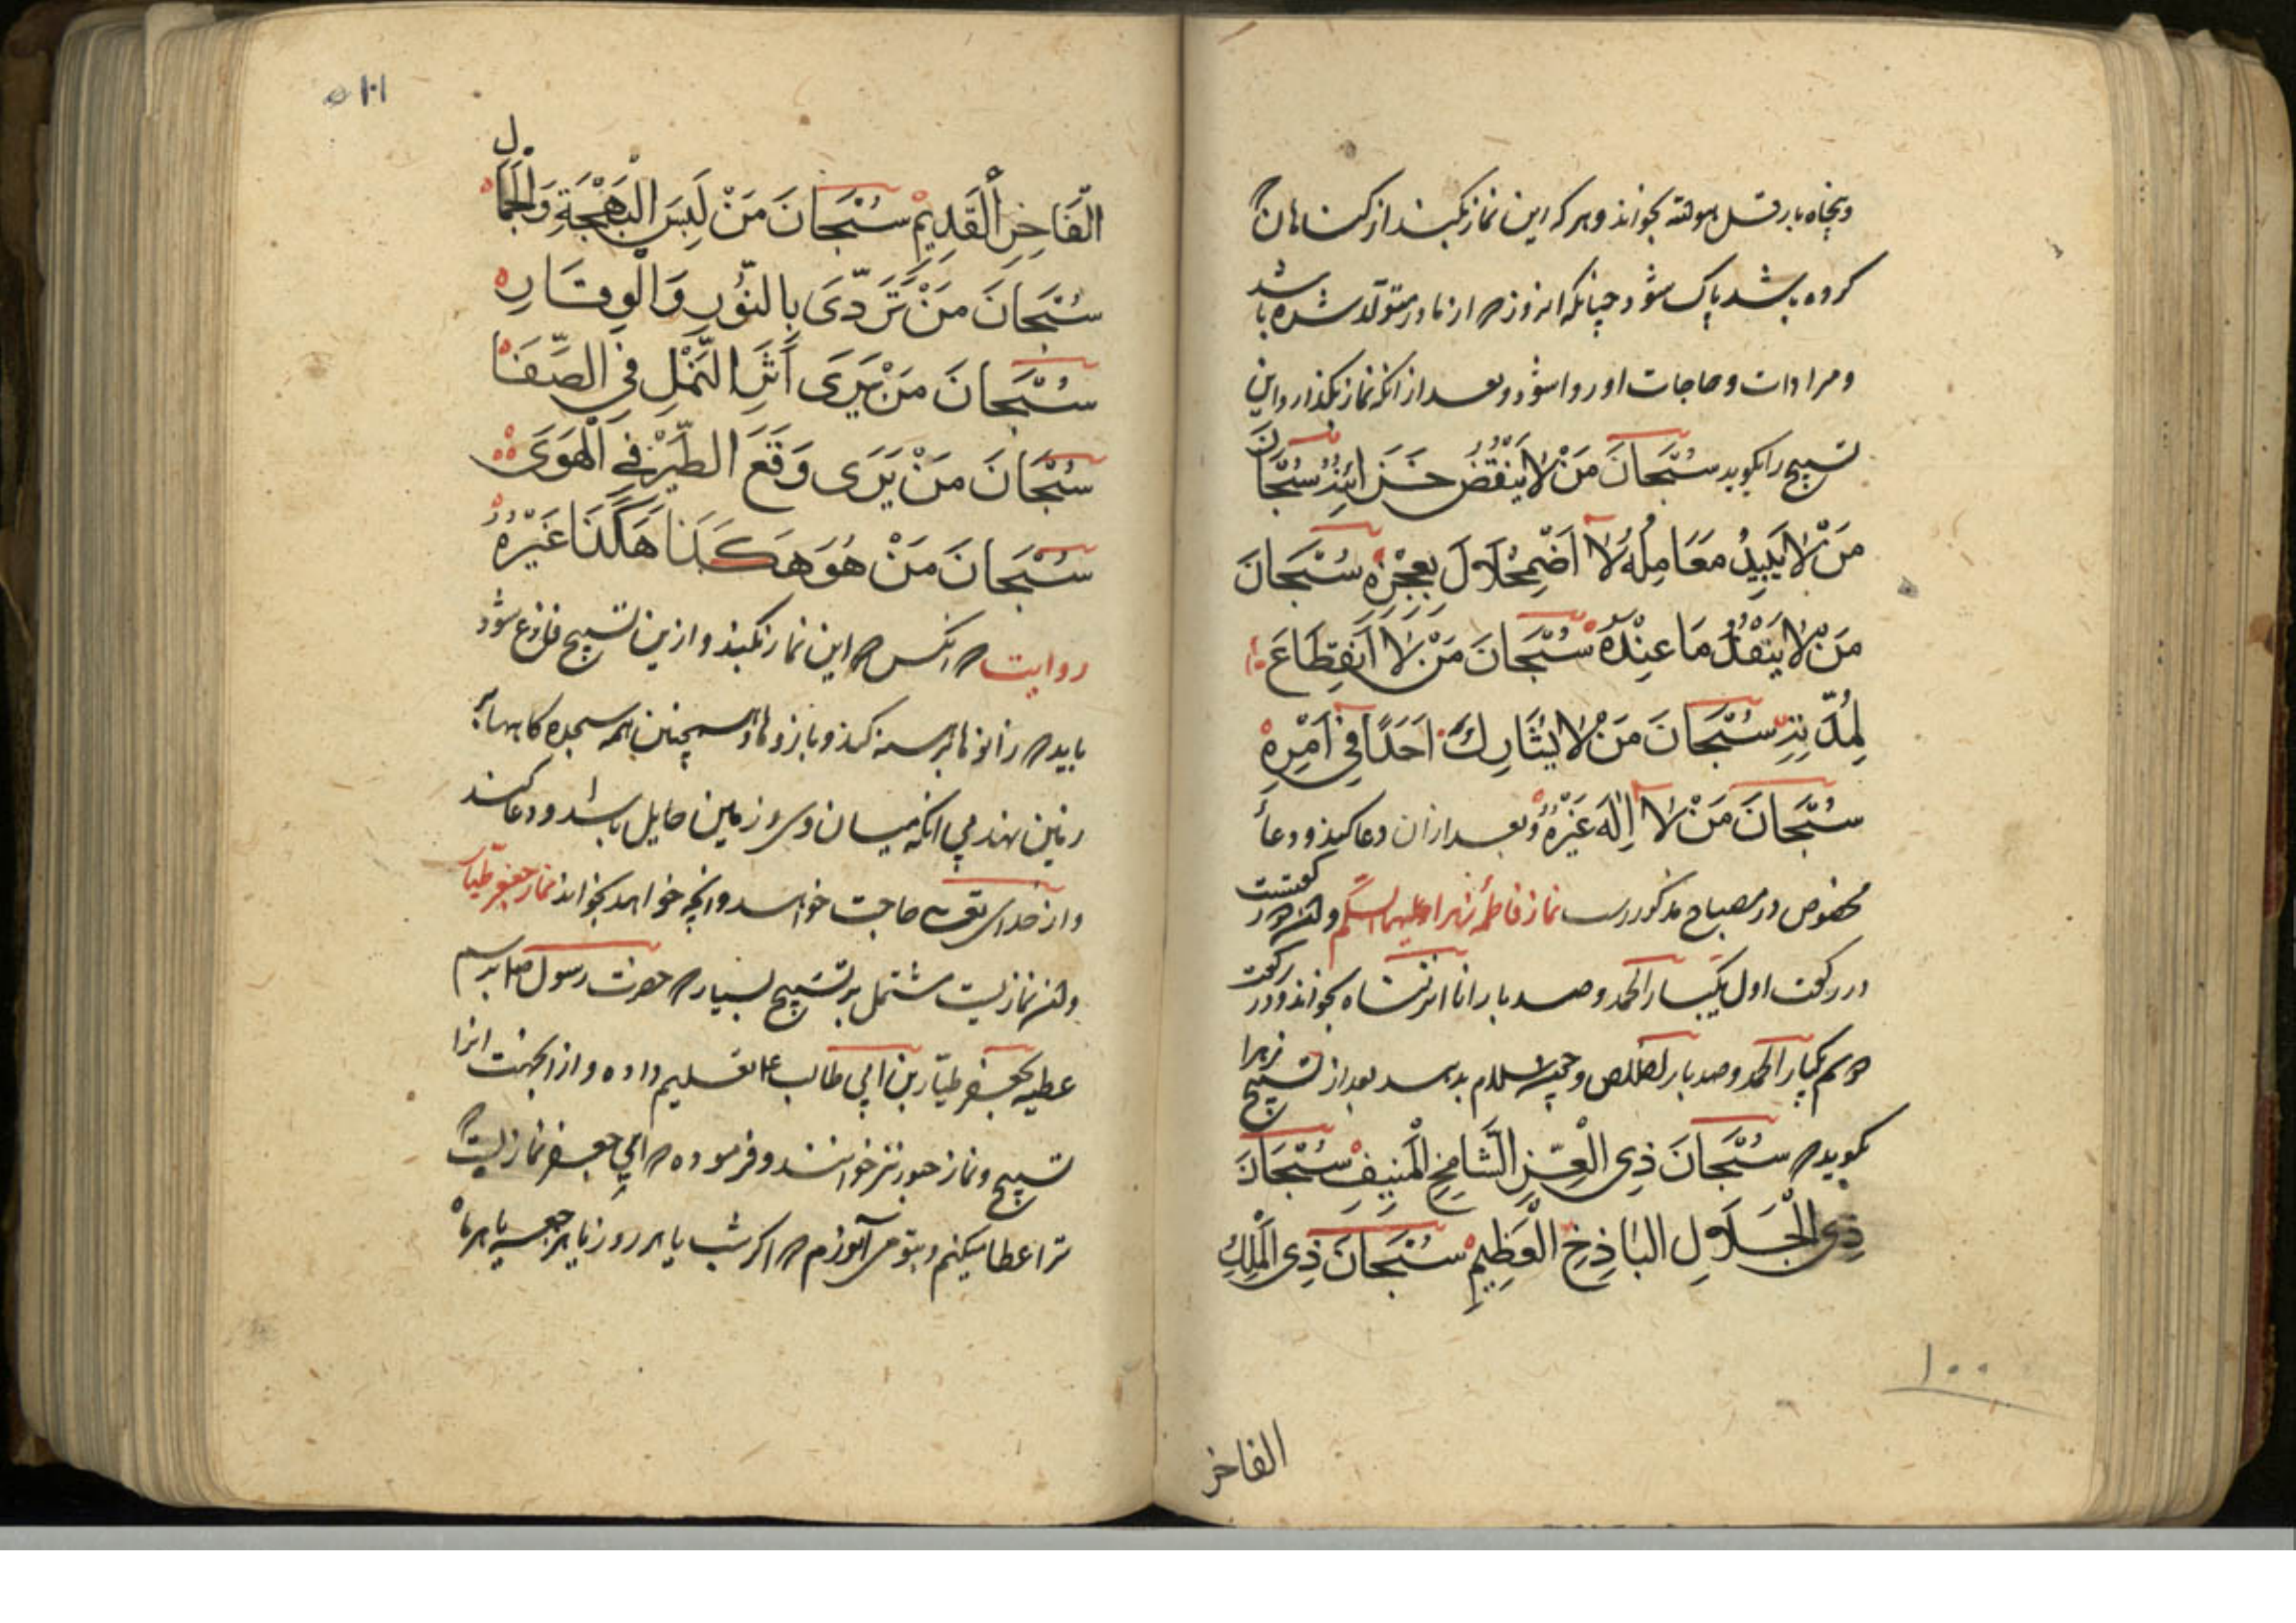 و پنجاه بار قل هو الله بخواند و هر که این نماز بکند از کناهان
کرده باشد پاک شود چنانکه امروز از مادر متولد شده باشد
و مرادات و حاجات او روا شود و بعد از انکه نماز بکذارد این
تسبیح را بکوید سُبْحَانَ مَنْ لَا يَنْقُضُ خَزَائِنُهُ سُبْحَانَ
مَنْ لَا يَبِيدُ مَعَالِمُهُ لَا اضْمِحْلَالَ لِعِزِّهِ سُبْحَانَ
مَنْ لَا يَنْفَدُ مَا عِنْدَهُ سُبْحَانَ مَنْ لَا اَنْقِطَاعَ
لِمُدَّتِهِ سُبْحَانَ مَنْ لَا يُشَارِكُ اَحَدًا فِي اَمْرِهِ
سُبْحَانَ مَنْ لَا اِلٰهَ غَيْرُهُ و بعد ازان دعا کند و دعاء
مخصوص در مصباح مذکور است نماز فاطمه زهرا علیها السلام
در رکعت اول یکبار الحمد و صد بار انا انزلناه بخواند و در رکعت
دویم یکبار الحمد و صد بار اخلاص و چون سلام بدهد بعد از تسبیح زهرا
بکوید سُبْحَانَ ذِي الْعِزِّ الشَّامِخِ الْمُنِيفِ سُبْحَانَ
ذِي الْجَلَالِ الْبَاذِخِ الْعَظِيمِ سُبْحَانَ ذِي الْمُلْكِ
۱۰۰
الفاخر
۱۰۱
الْفَاخِرِ الْقَدِيمِ سُبْحَانَ مَنْ لَبِسَ الْبَهْجَةَ وَالْجَمَال
سُبْحَانَ مَنْ تَرَدَّى بِالنُّورِ وَالْوِقَارِ
سُبْحَانَ مَنْ يَرَى اَثَرَ النَّمْلِ فِي الصَّفَا
سُبْحَانَ مَنْ يَرَى وَقَعَ الطَّيْرِ فِي الْهَوَى
سُبْحَانَ مَنْ هُوَ هَكَذَا هَكَذَا غَيْرُهُ
روایت انکس این نماز بکند و ازین تسبیح فارغ شود
باید زانوها برهنه کند و بازوها و همچنین همه سجده کاهها بر
زمین نهد بی انکه میان وی و زمین حایل باشد و دعا کند
و از خدای تعالی حاجت خواهد و انچه خواهد بخواند نماز جعفر طیار
نمازیست مشتمل بر تسبیح بسیار حضرت رسول برسم
عطیه بجعفر طیار بن ابی طالب تعلیم داده و از اینجهت انرا
تسبیح و نماز نیز خوانند و فرموده ای جعفر نمازیست
ترا عطا میکنم و بتو می آموزم اکر شب یا هر روز یا هر جمعه یا هر ماه